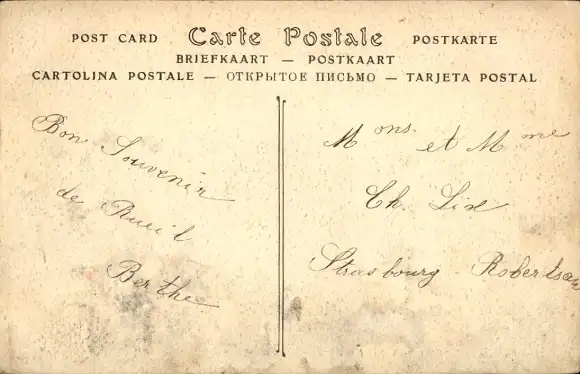 POST CARD Carte Postale POSTKARTE
BRIEFKAART — POSTKAART
CARTOLINA POSTALE — ОТКРЫТОЕ ПИСЬМО — TARJETA POSTAL
Bon Souvenir
de Rueil
Berthe
Mons. et Mme
Ch. Lix
Strasbourg - Robertsau